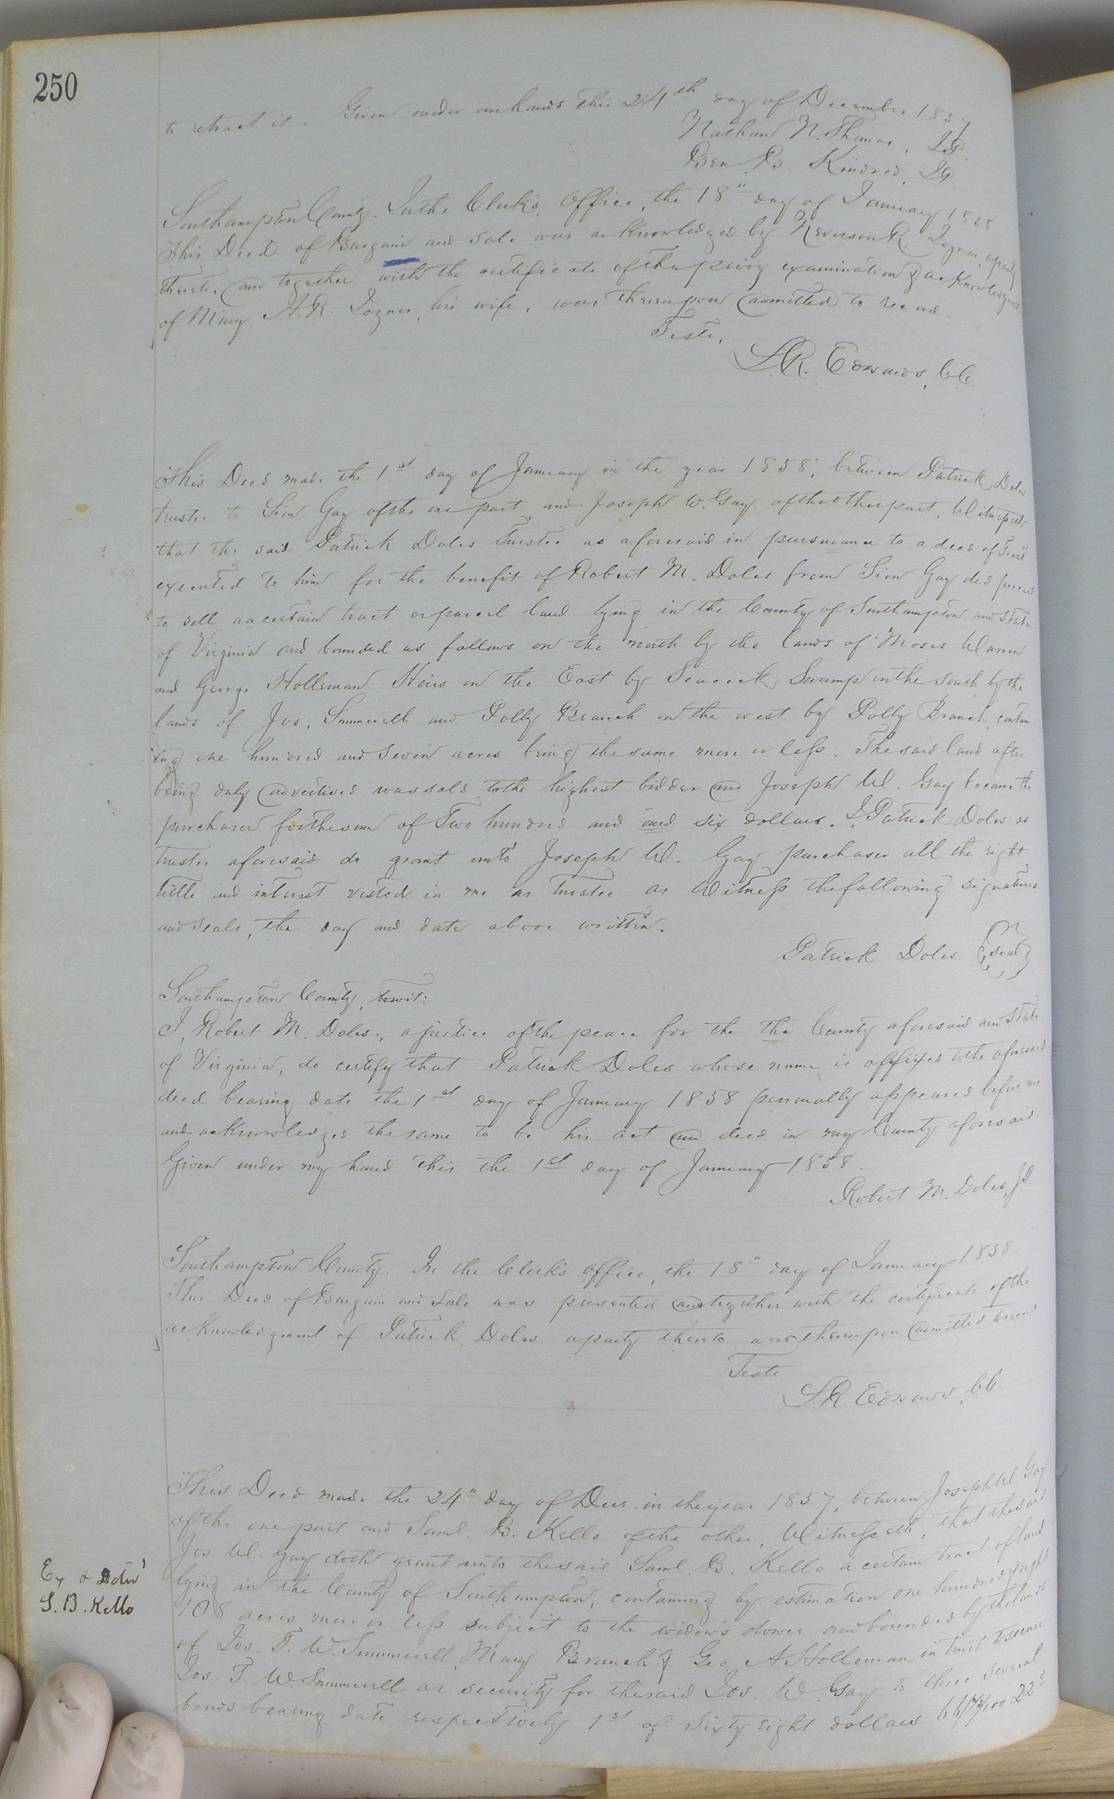 250
to retract it. Given under our hands this 24th day of December 1857
Nathan N. Thomas, J.P.
Ben B. Kindred, J.P.
Southampton County. In the Clerk's Office, the 18" day of January 1858
This Deed of Bargain and Sale was acknowledged by R. Joyner, a party
thereto, and together with the certificate of the privy examination & acknowledgment
of Mary A.R. Joyner, his wife, was thereupon admitted to record.
Teste,
L.R. Edwards, C.C.
This Deed made the 1st day of January in the year 1858, between Patrick Doles
trustee to Sion Gay of the one part and Joseph W. Gay of the other part, Witnesseth
that the said Patrick Doles Trustee as aforesaid in pursuance to a deed of Trust
executed to him for the benefit of Robert M. Doles from Sion Gay did proceed
to sell a certain tract or parcel land lying in the County of Southampton and State
of Virginia and bounded as follows on the north by the lands of Moses
and George Holleman Heirs on the East by Seacock Swamp on the south by the
lands of Jos. Summerell and Polly Branch on the west by Polly Branch, contain
ing one hundred and seven acres being the same more or less. The said land after
being duly advertised was sold to the highest bidder and Joseph W. Gay became the
purchaser for the sum of Two hundred and and six dollars. I, Patrick Doles as
trustee aforesaid do grant unto Joseph W. Gay purchaser all the right
title and interest vested in me as trustee as Witness the following signatures
and seals, the day and date above written.
Patrick Doles {seal}
Southampton County, towit:
I, Robert M. Doles, a justice of the peace for the the County aforesaid and State
of Virginia, do certify that Patrick Doles whose name is affixed to the aforesaid
deed bearing date the 1st day of January 1858 personally appeared before me
and acknowledged the same to be his act and deed in my County aforesaid.
Given under my hand this the 1st day of January 1858.
Robert M. Doles, J.P.
Southampton County. In the Clerk's office, the 18" day of January 1858
This Deed of Bargain and Sale was presented and together with the certificate of the
acknowledgment of Patrick Doles a party thereto was thereupon admitted to record
Teste
L.R. Edwards, C.C.
This Deed made the 24" day of Decr. in the year 1857, between Joseph W. Gay
of the one part and Saml. B. Kello of the other, Witnesseth, that the said
Jos W. Gay doth grant unto the said Saml. B. Kello a certain tract of land
Ex & Delivd
S. B. Kello
lying in the County of Southampton, containing by estimation one hundred & eight
108 acres more or less subject to the widow's dower and bounded by the lands
of Jos. T. W. Summerell, Mary Branch & Geo. A Holleman in trust to secure
Jos. T. W Summerell as security for the said Jos. W Gay to three several
bonds bearing date respectively 1st of Sixty eight dollars